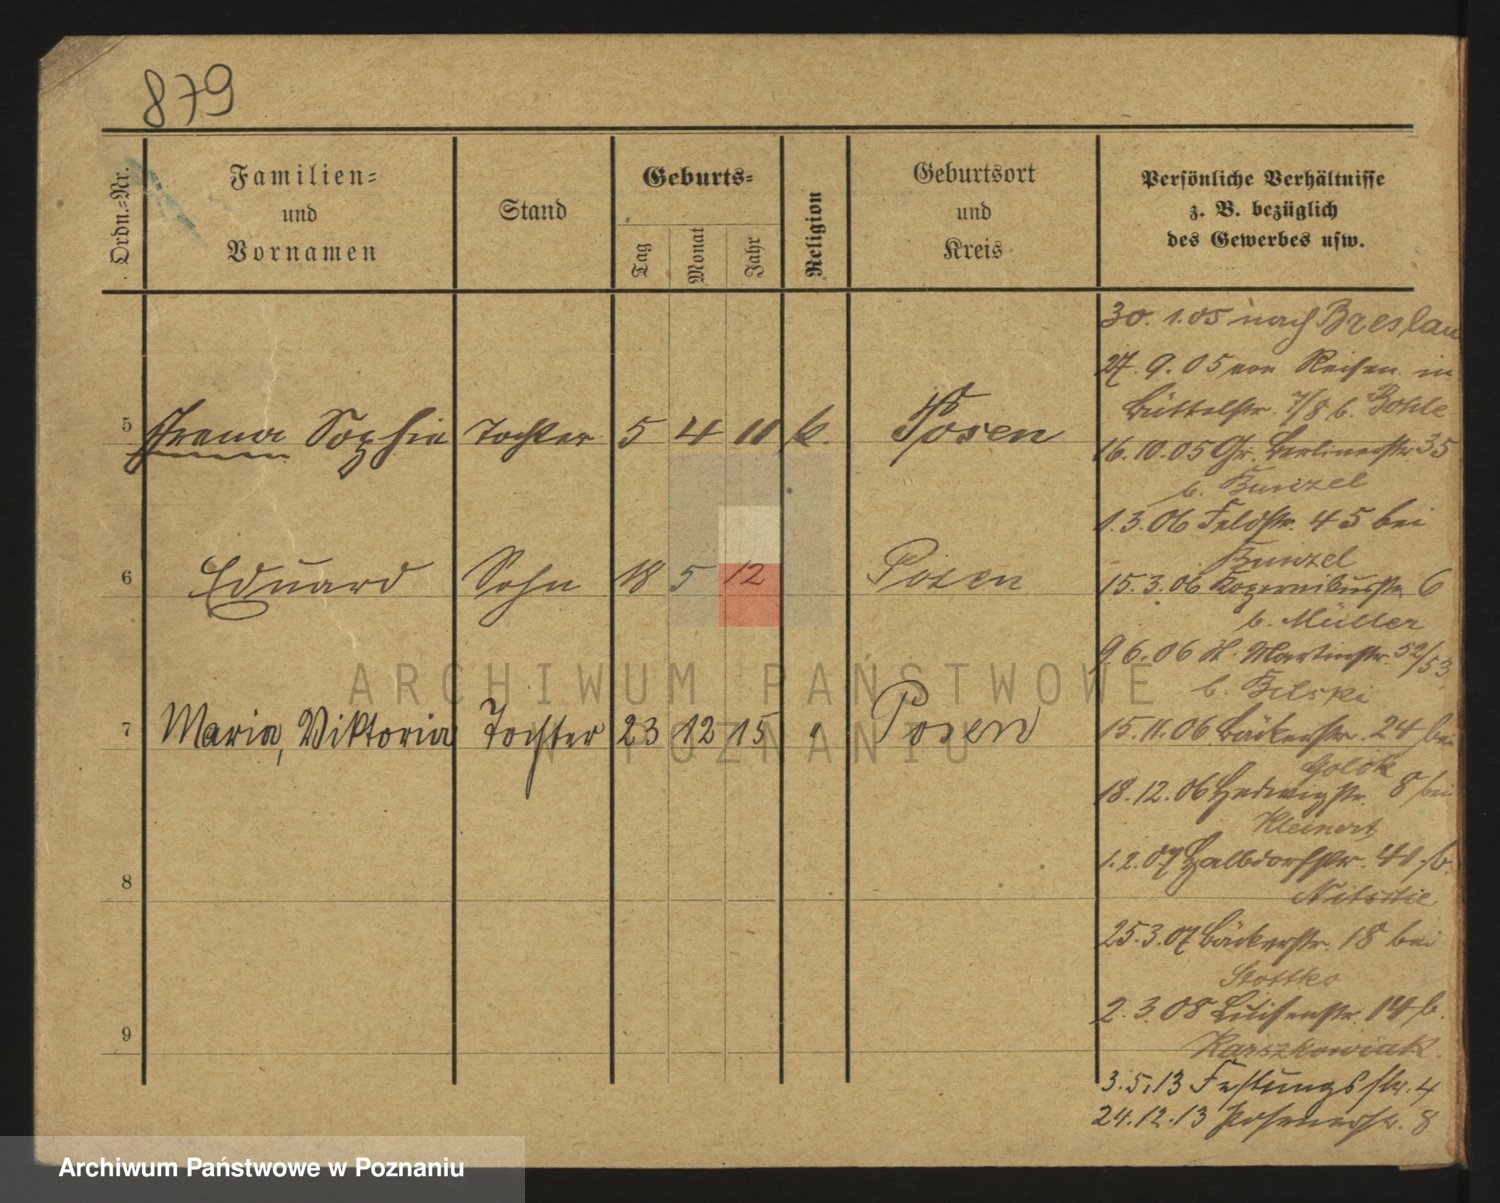 879
Ordn.-Nr.
Familien-
und
Vornamen
Stand
Geburts-
Tag
Monat
Jahr
Religion
Geburtsort
und
Kreis
Persönliche Verhältnisse
z. B. bezüglich
des Gewerbes usw.
5 Irena Sophie Tochter 5 4 11 k. Posen
6 Eduard Sohn 18 5 12 Posen
7 Maria, Viktoria Tochter 23 12 15 " Posen
8
9
30. 1. 05 nach Breslau
27. 9. 05 von Reisen in
Büttelstr. 7/8 b. Bohle
16. 10. 05 Gr. Berlinerstr. 35
b. Kunzel
1. 3. 06 Feldstr. 45 bei
Kunzel
15. 3. 06 Kopernikusstr. 6
b. Müller
9. 6. 06 St. Martinstr. 52/53
b. Bilski
15. 11. 06 Bäckerstr. 24 bei
18. 12. 06 Hedwigstr. 8 bei
Kleinert
1. 2. 07 Halbdorfstr. 40 b.
Nitsche
25. 3. 07 Bäckerstr. 18 bei
2. 3. 08 Luisenstr. 14 b.
3. 5. 13 Festungsstr. 4
24. 12. 13 Posenerstr. 8
ARCHIWUM PAŃSTWOWE
W POZNANIU
Archiwum Państwowe w Poznaniu